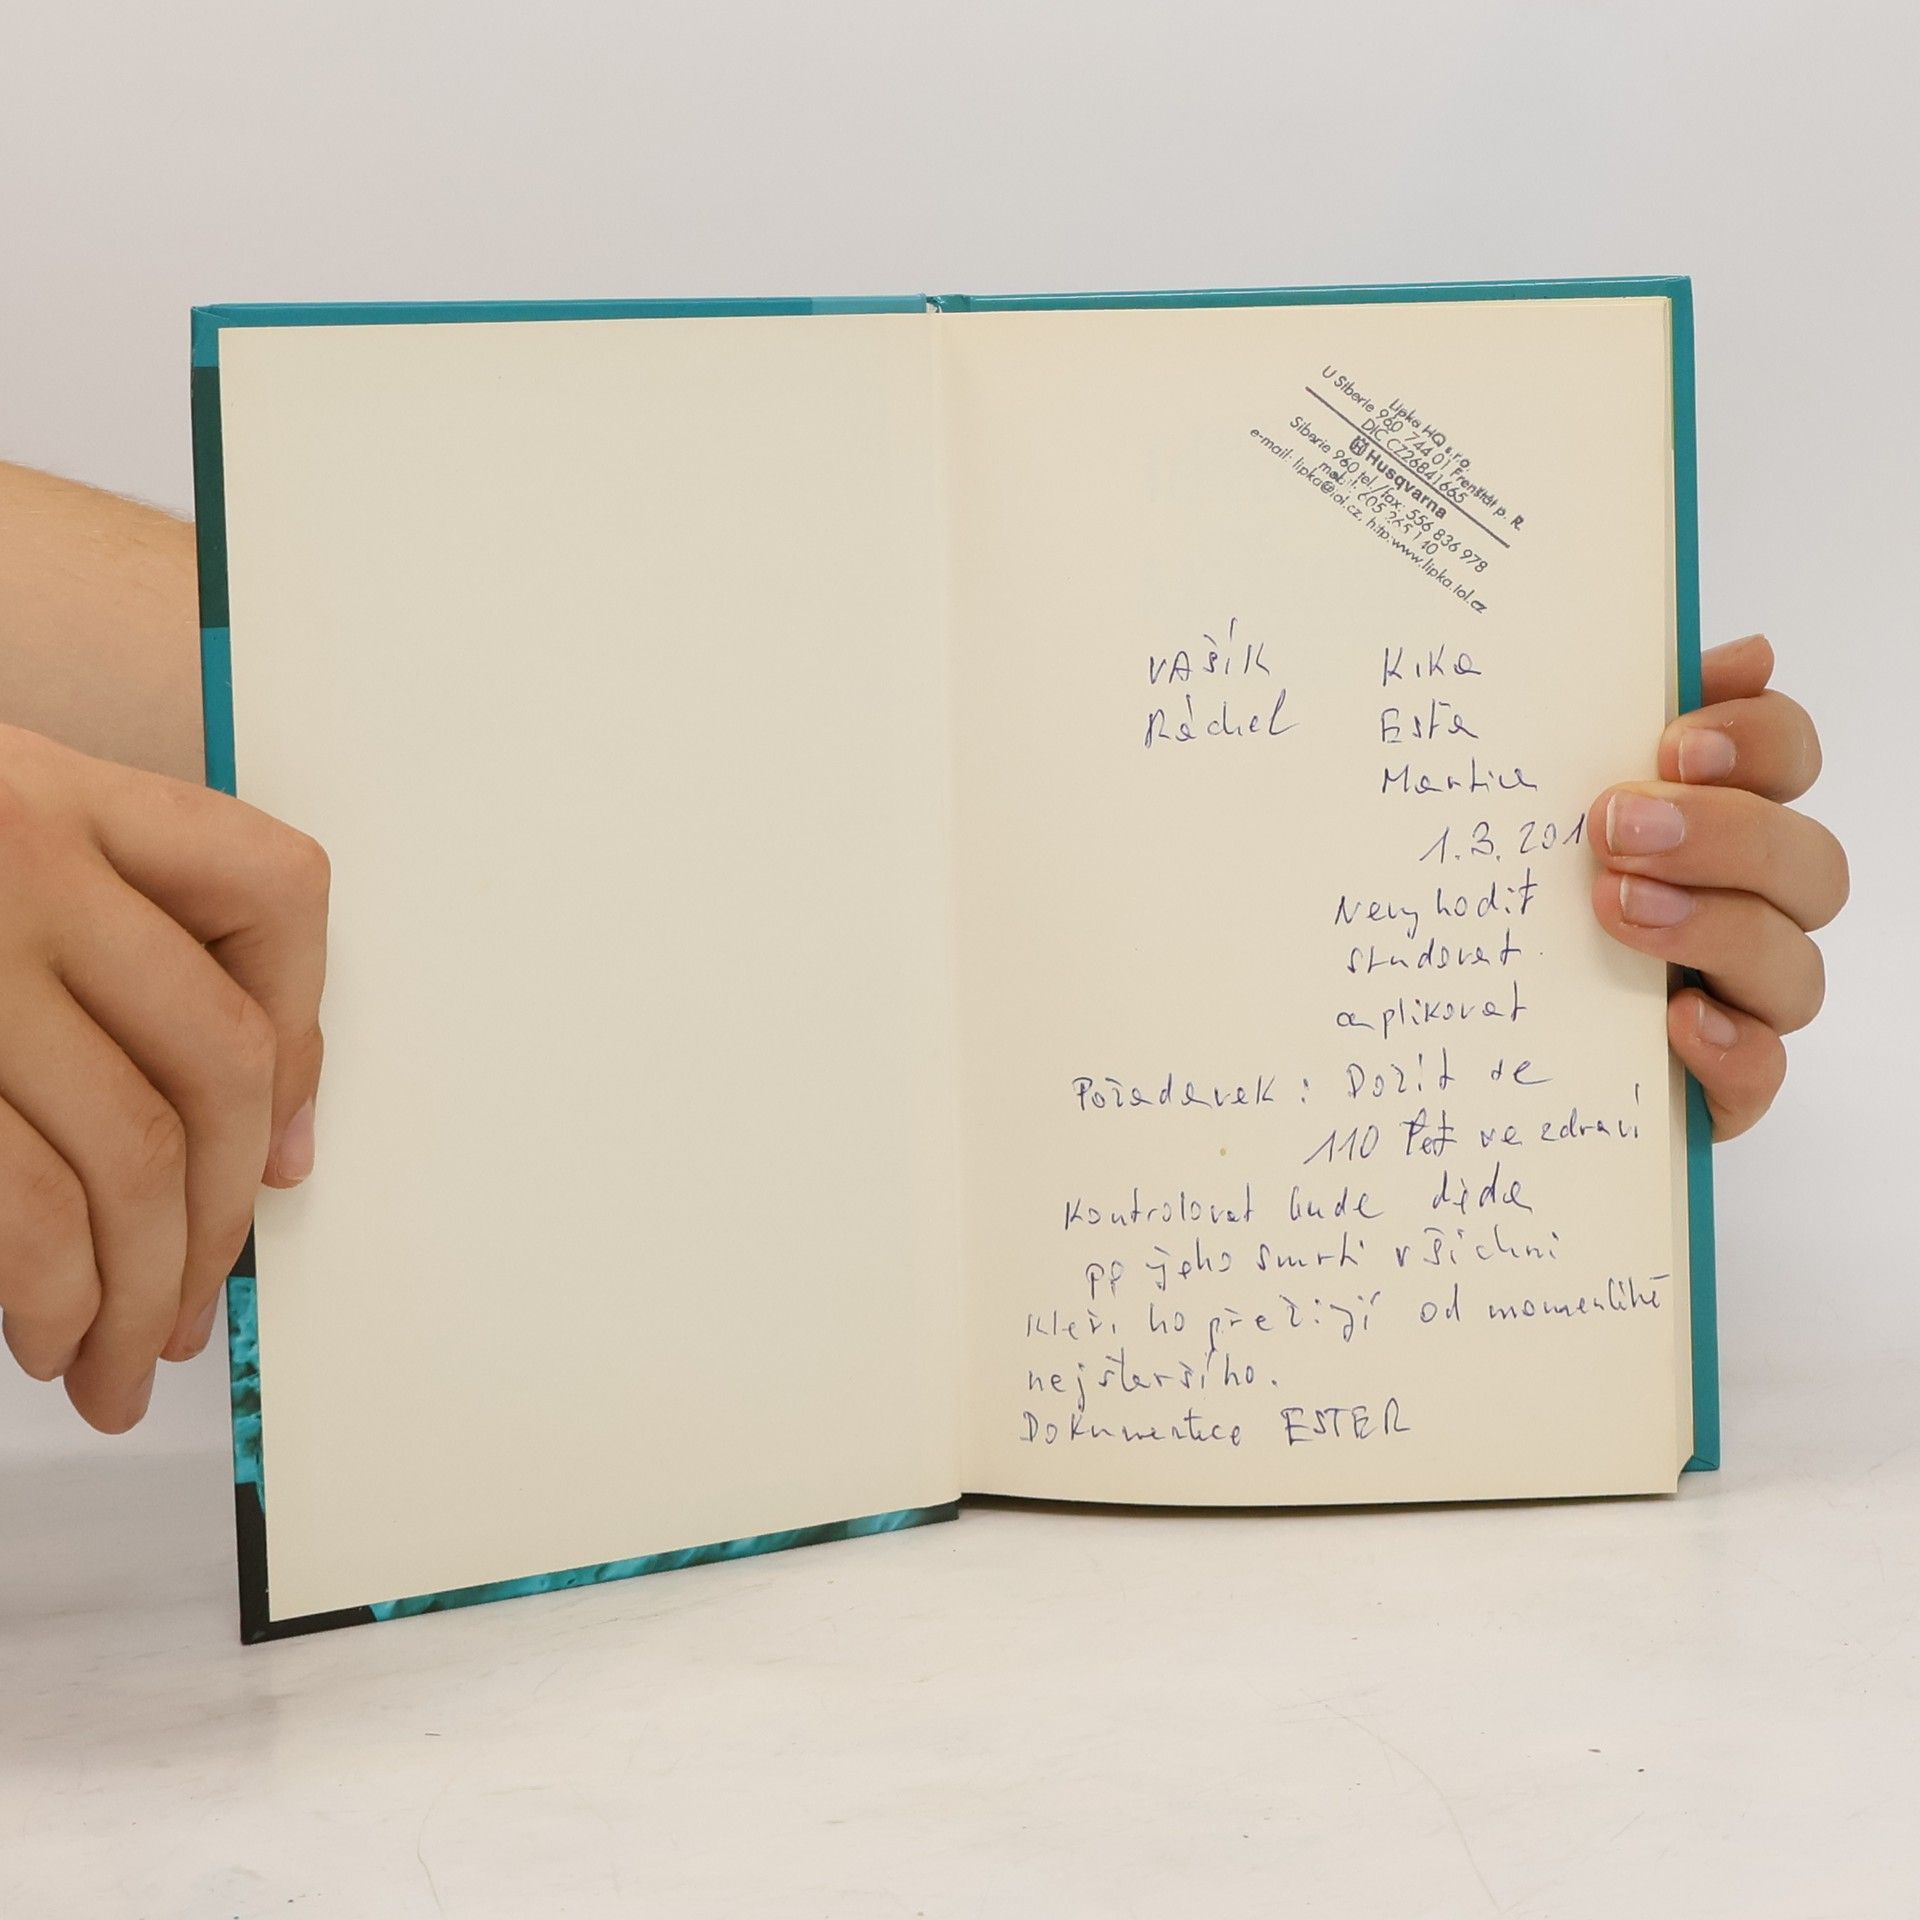 Lipka HQ s.r.o.
U Siberie 960 744 01 Frenštát p. R.
DIČ CZ26841665
Husqvarna
Siberie 960 tel./fax: 556 836 978
mobil: 605 265 110
e-mail: lipka@iol.cz, http:www.lipka.iol.cz
VAŠÍK Kika
Ráchel Esťa
Martin
1.3.201
Nevyhodiť
studovat.
aplikovat
Požadavek: Dožít se
110 let ve zdraví
Kontrolovat bude děda
po jeho smrti všichni
kteří ho přežijí od momentálně
nejstaršího.
Dokumentace ESTER